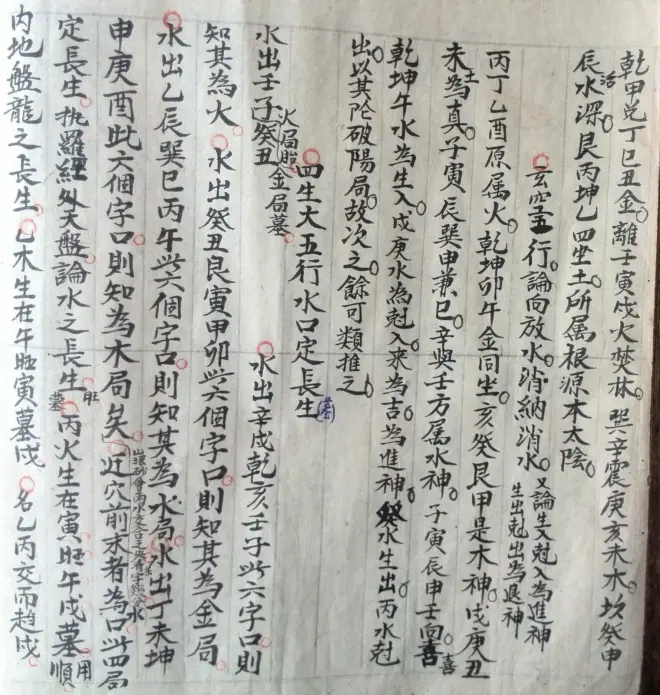 乾甲兌丁巳丑金。離壬寅戌火焚林。巽辛震庚亥未木。坎癸申
辰水深。活艮丙坤乙四坐土。所属根源本太陰。
玄空五行。論向放水。消納消水。又論生入尅入為進神
生出尅出為退神
丙丁乙酉原属火。乾坤卯午金同坐。亥癸艮甲是木神。戌庚丑
未為土真。子寅辰巽申兼巳。辛與壬方属水神。子寅辰申壬向喜喜
乾坤午水為生入。戌庚水為尅入来為吉。為進神。癸水生出。丙水尅
出。以其陀破陽局。故次之。餘可類推之。
四生大五行水口定長生(墓)
水出壬子癸丑火局胎金局墓。水出辛戌乾亥壬子此六字口。則
知其為火。水出癸丑艮寅甲卯此六個字口。則知其為金局。
水出乙辰巽巳丙午此六個字口。則知其為水局。水出丁未坤
申庚酉此六個字口。則知為木局矣。近穴前求者為口。此四局
水
定長生。执羅經外天盤。論水之長生。旺墓丙火生在寅。旺午戌墓。用順
内地盤龍之長生。乙木生在午旺寅墓戌。名乙丙交而趋戌。